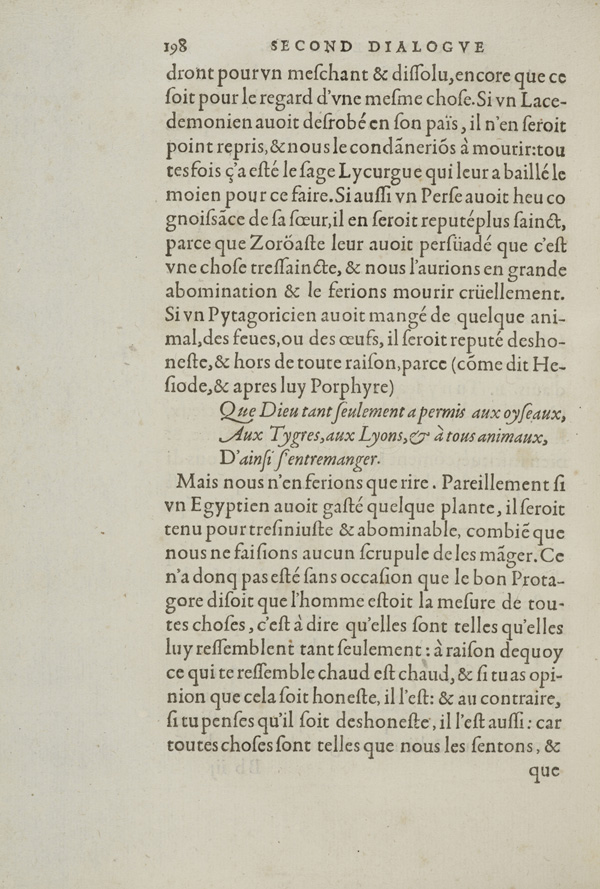 198 SECOND DIALOGVE
dront pour vn meſchant & diſſolu, encore que ce
ſoit pour le regard d'vne meſme choſe. Si vn Lace-
demonien auoit deſrobé en ſon païs, il n'en ſeroit
point repris, & nous le condãneriõs à mourir: tou
tesfois ç'a eſté le ſage Lycurgue qui leur a baillé le
moien pour ce faire. Si auſſi vn Perſe auoit heu co
gnoiſsãce de ſa ſœur, il en ſeroit reputé plus ſainct,
parce que Zoröaſte leur auoit perſüadé que c'eſt
vne choſe treſſaincte, & nous l'aurions en grande
abomination & le ferions mourir crüellement.
Si vn Pytagoricien auoit mangé de quelque ani-
mal, des feues, ou des œufs, il ſeroit reputé desho-
neſte, & hors de toute raiſon, parce (cõme dit He-
ſiode, & apres luy Porphyre)
Que Dieu tant ſeulement a permis aux oyſeaux,
Aux Tygres, aux Lyons, & à tous animaux,
D'ainſi s'entremanger.
Mais nous n'en ferions que rire. Pareillement ſi
vn Egyptien auoit gaſté quelque plante, il ſeroit
tenu pour treſiniuſte & abominable, combiẽ que
nous ne faiſions aucun ſcrupule de les mãger. Ce
n'a donq pas eſté ſans occaſion que le bon Prota-
gore diſoit que l'homme eſtoit la meſure de tou-
tes choſes, c'eſt à dire qu'elles ſont telles qu'elles
luy reſſemblent tant ſeulement: à raiſon dequoy
ce qui te reſſemble chaud eſt chaud, & ſi tu as opi-
nion que cela ſoit honeſte, il l'eſt: & au contraire,
ſi tu penſes qu'il ſoit deshoneſte, il l'eſt auſſi: car
toutes choſes ſont telles que nous les ſentons, &
que